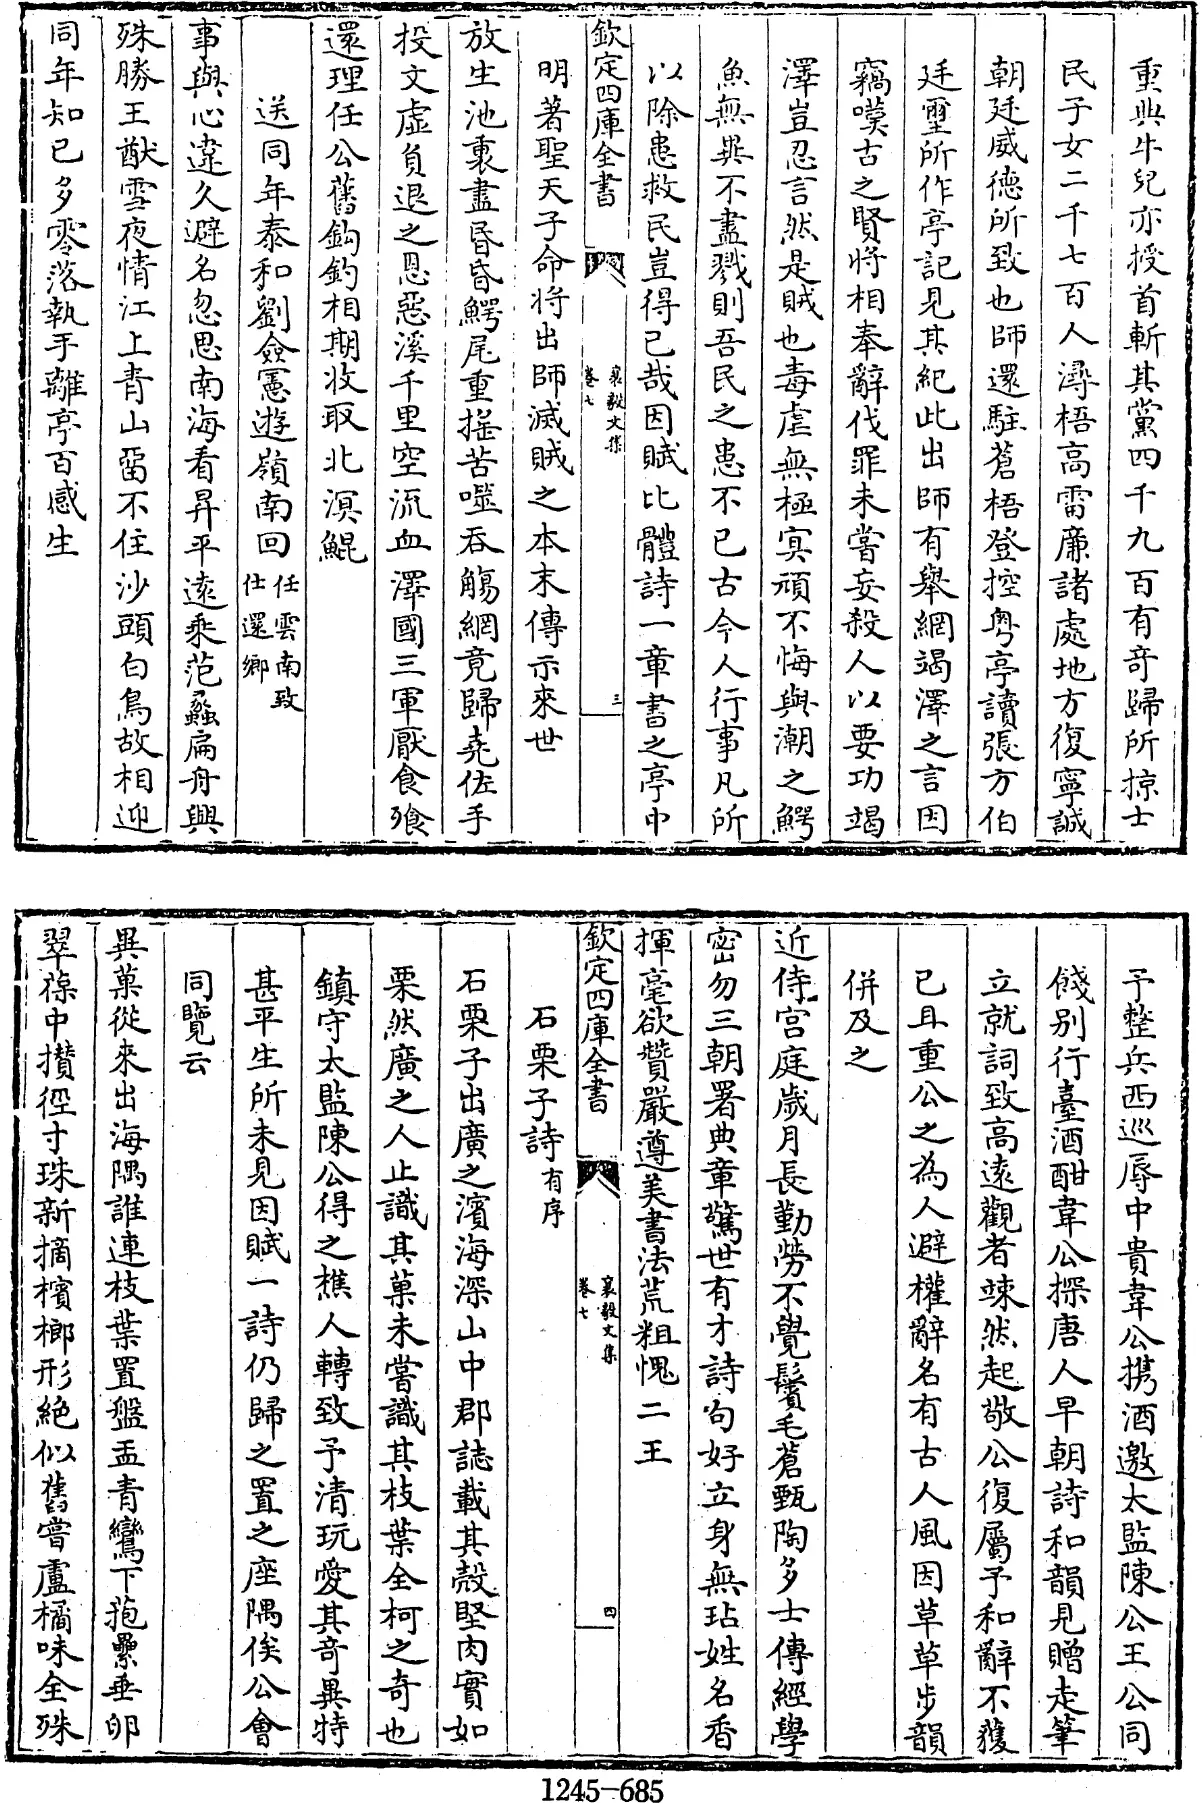 重與牛兒亦授首斬其黨四千九百有竒歸所掠士
民子女二千七百人潯梧高雷亷諸處地方復寧誠
朝廷威德所致也師還駐蒼梧登控粤亭讀張方伯
廷璽所作亭記見其紀此出師有舉網竭澤之言因
竊嘆古之賢將相奉辭伐罪未嘗妄殺人以要功竭
澤豈忍言然是賊也毒虐無極㝠頑不悔與潮之鰐
魚無異不盡戮則吾民之患不已古今人行事凡所
以除患救民豈得已哉因賦比體詩一章書之亭中
明著聖天子命將出師滅賊之本末傳示來世
放生池裏盡昏昏鰐尾重搖苦噬吞觴網竟歸堯佐手
投文虛負退之恩惡溪千里空流血澤國三軍厭食飱
還理任公舊鈎釣相期收取北溟鯤
送同年泰和劉僉憲遊嶺南回任雲南致仕還鄉
事與心違久避名忽思南海看昇平逺乘范蠡扁舟興
殊勝王猷雪夜情江上青山畱不住沙頭白鳥故相迎
同年知已多零落執手離亭百感生
欽定四庫全書
襄毅文集
卷七
三
予整兵西巡辱中貴韋公携酒邀太監陳公王公同
餞别行臺酒酣韋公探唐人早朝詩和韻見贈走筆
立就詞致高逺觀者竦然起敬公復屬予和辭不獲
已且重公之為人避權辭名有古人風因草草步韻
併及之
近侍宫庭歲月長勤勞不覺鬢毛蒼甄陶多士傳經學
密勿三朝署典章驚世有才詩句好立身無玷姓名香
揮毫欲贊嚴遵美書法荒粗愧二王
欽定四庫全書
襄毅文集
卷七
四
石栗子詩有序
石栗子出廣之濱海深山中郡誌載其殼堅肉實如
栗然廣之人止識其菓未嘗識其枝葉全柯之奇也
鎮守太監陳公得之樵人轉致予清玩愛其奇異特
甚平生所未見因賦一詩仍歸之置之座隅俟公會
同覽云
異菓從來出海隅誰連枝葉置盤盂青鸞下菢纍垂卵
翠葆中攅徑寸珠新摘檳榔形絶似舊嘗盧橘味全殊
1245-685